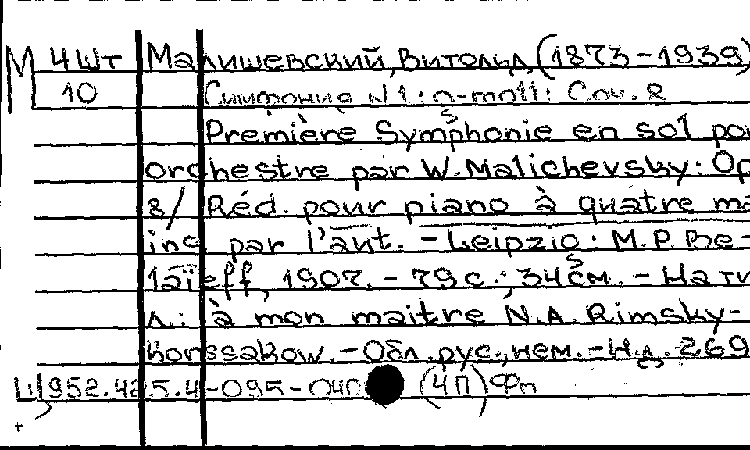 М 4 шт Малишевский, Витольд, (1873-1939)
10 Симфония N 1: g-moll: Соч. 8
Première Symphonie en sol po
orchestre par W. Malichevsky: Op
8/ Réd. pour piano à quatre ma
ins par l'aut. - Leipzig: M.P. Be-
laïeff, 1907. - 79 с.; 34 см. - На ти
л.: à mon maitre N.A. Rimsky-
Korssakow. - Обл. рус., нем. - Н.д. 269
Ц 952.425.4-095-040 (4П) Фп